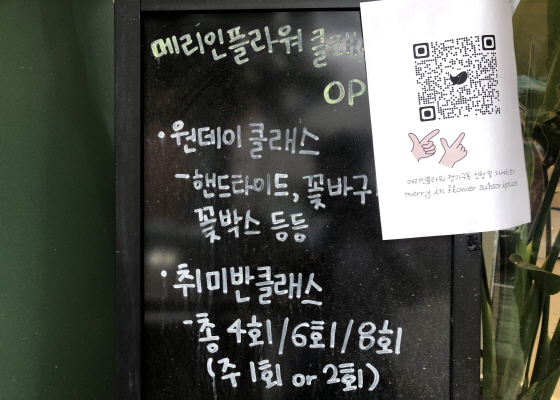 메리인플라워 클래
OP
· 원데이 클래스
- 핸드타이드, 꽃바구
꽃박스 등등
· 취미반클래스
- 총 4회/6회/8회
(주 1회 or 2회)
메리인플라워 정기구독 신청 및
merry in flower subscription